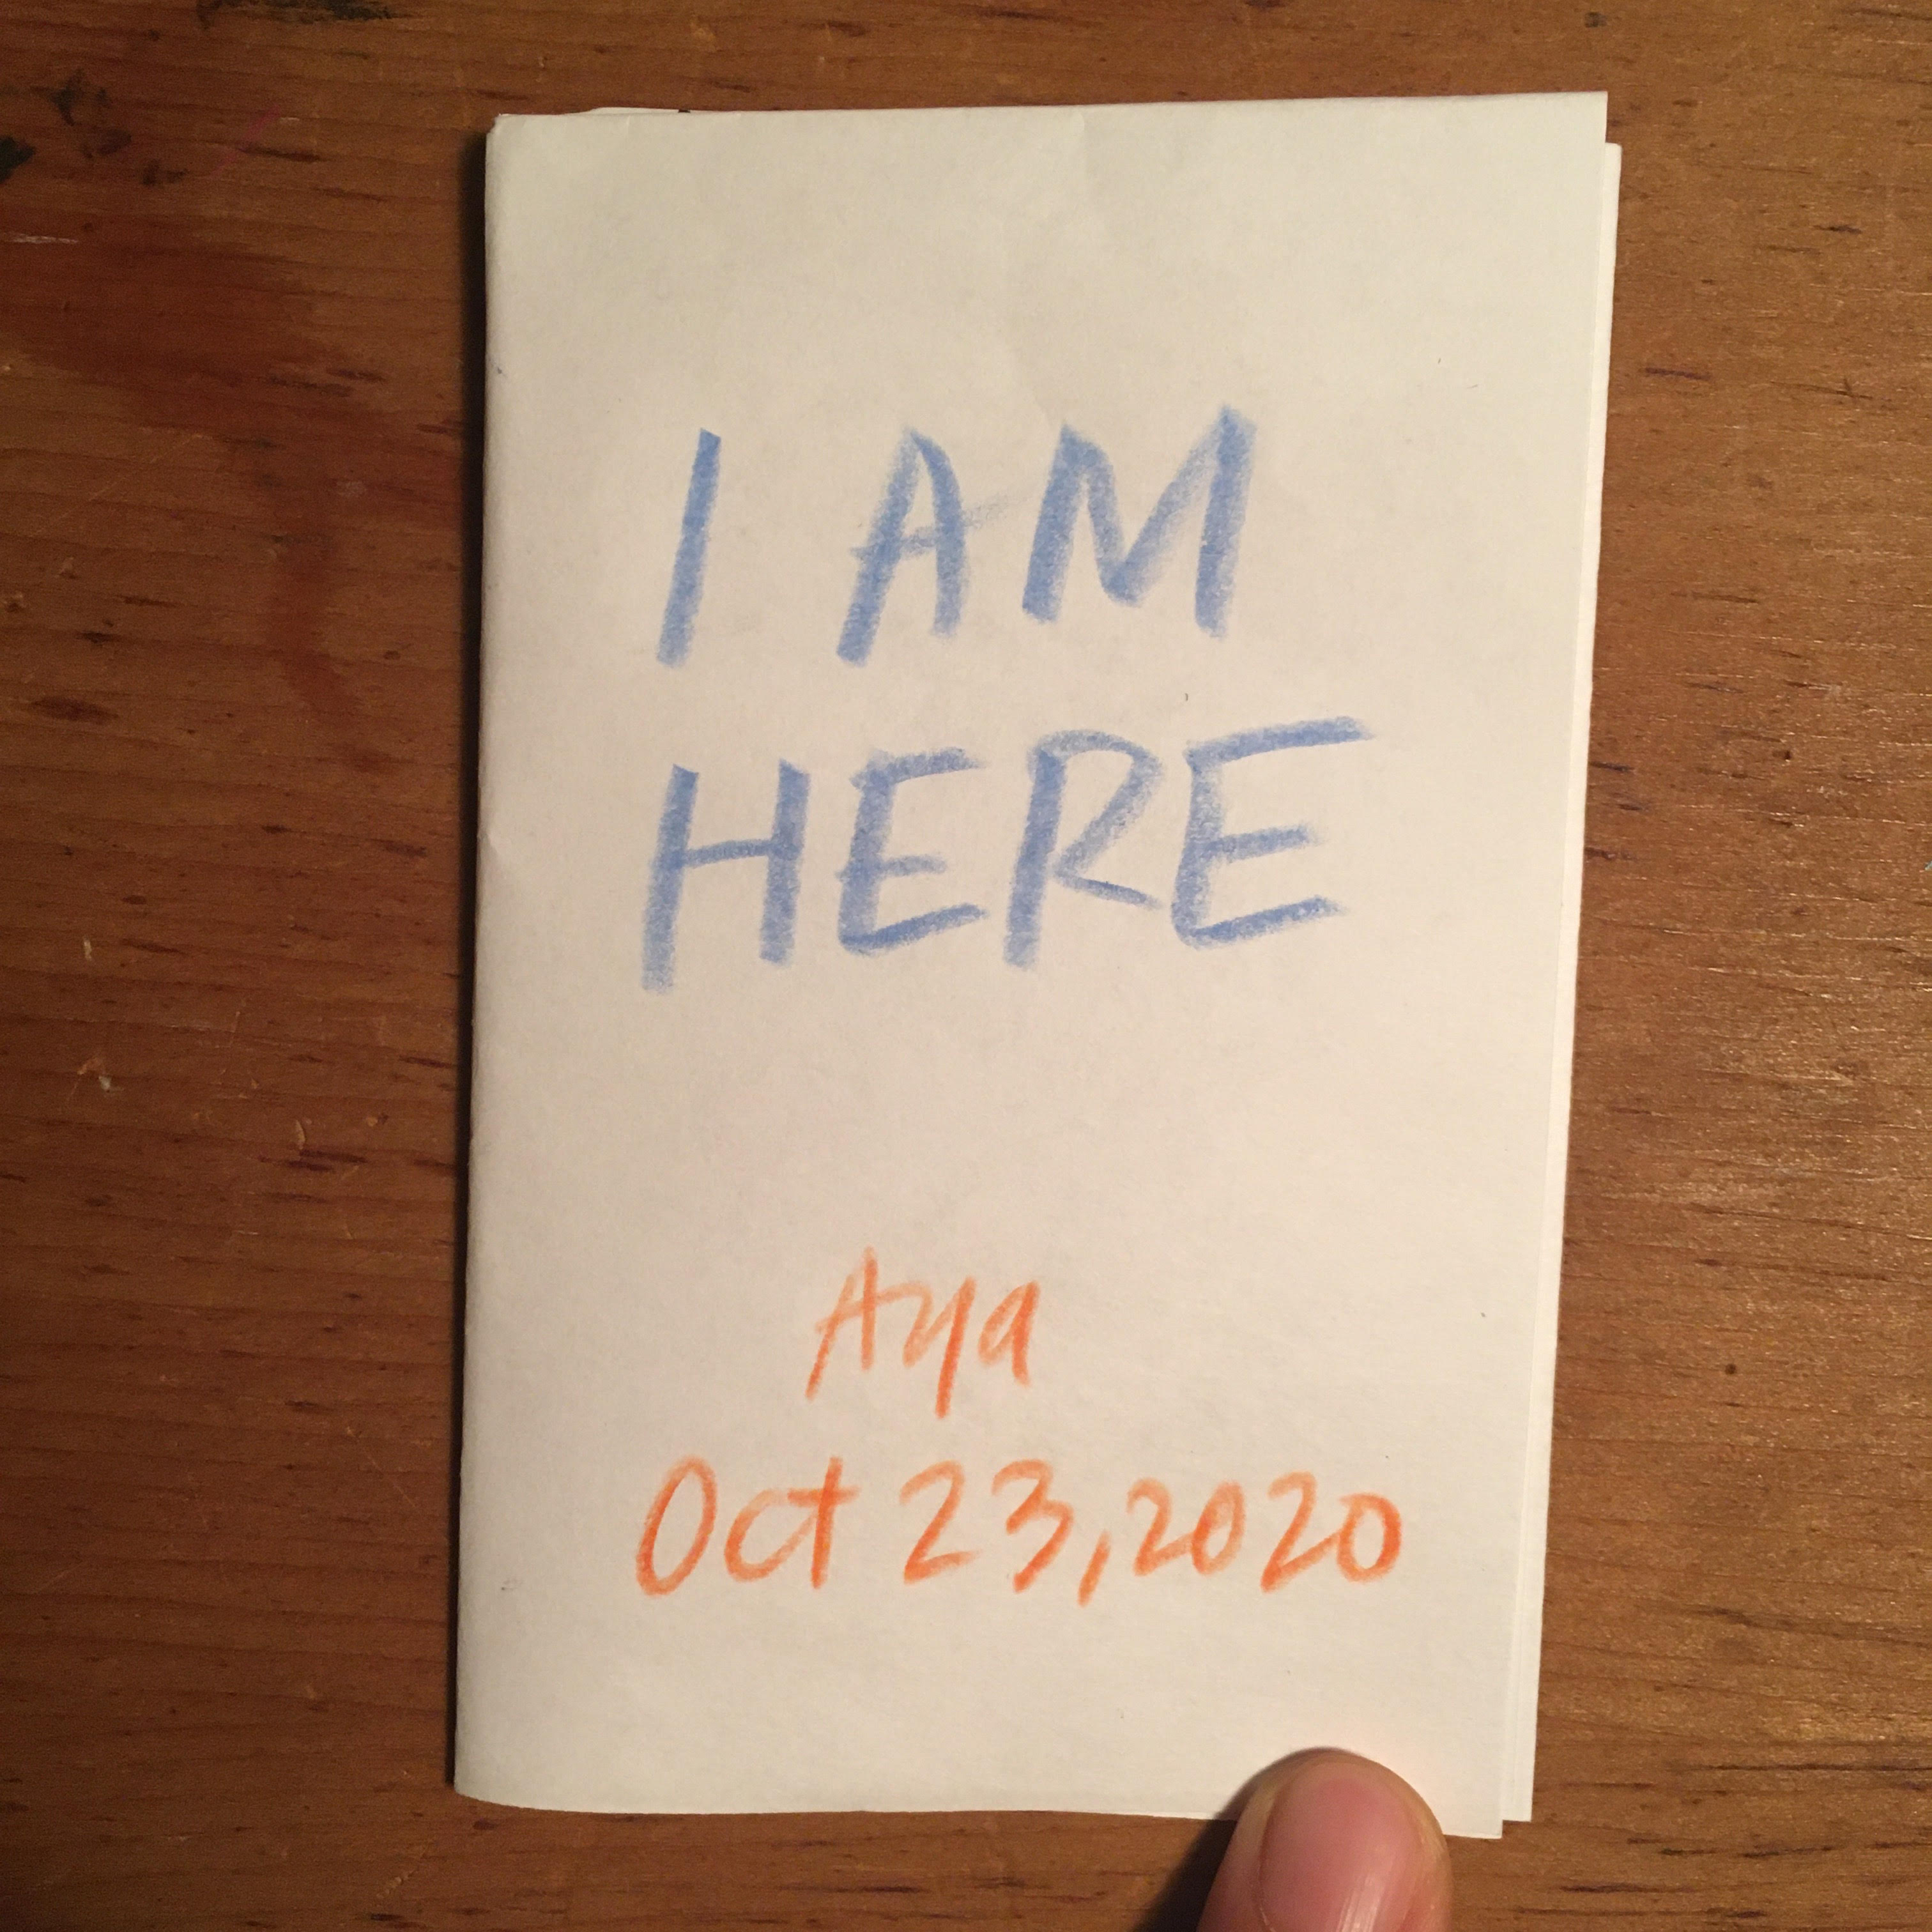 I AM
HERE
Aya
Oct 23, 2020